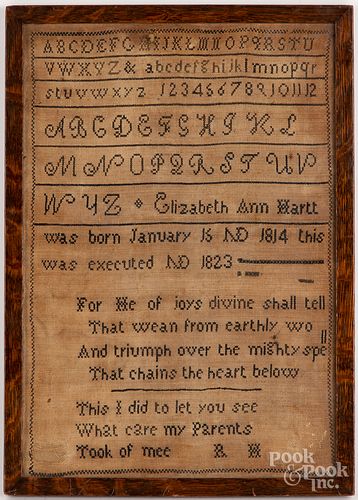 ABCDEFGHIJKLMNOPQRSTU
VWXYZ& abcdefghijklmnopqr
stuvwxyz 123456789101112
ABCDEFGHIJKL
MNOPQRSTUV
WYZ Elizabeth Ann Hartt
was born January 15 AD 1814 this
was executed AD 1823
For He of joys divine shall tell
That wean from earthly wo
And triumph over the mighty spell
That chains the heart below
This I did to let you see
What care my Parents
Took of mee
POOK
& POOK
INC.